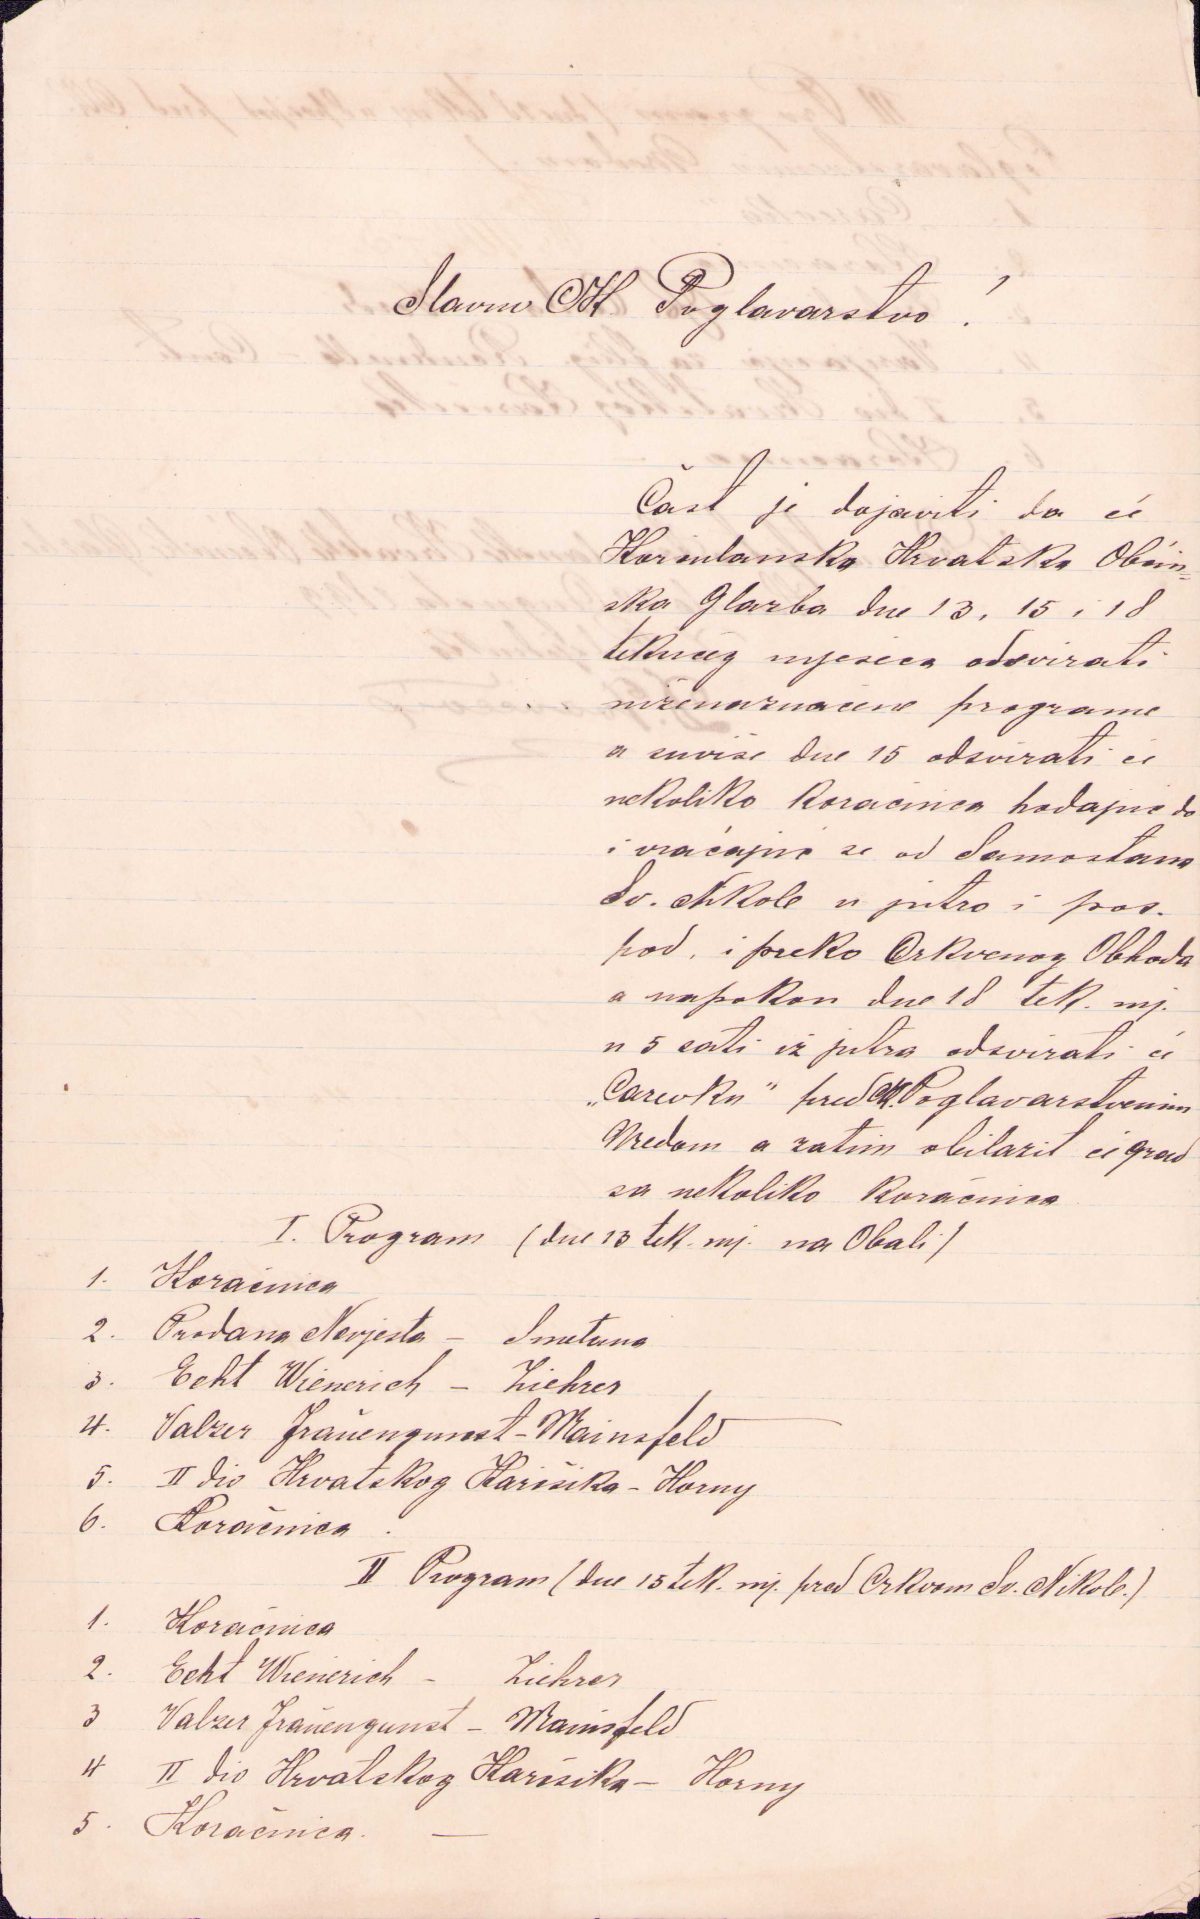 Slavno CK Poglavarstvo !
Čast je dojaviti da će
Korčulanska Hrvatska Obćin=
ska Glazba dne 13, 15 i 18
tekućeg mjeseca odsvirati
niženaznačene programe
a suviše dne 15 odsvirati će
nekoliko koračnica hodajuć do
i vraćajuć se od Samostana
Sv. Nikole u jutro i pos.
pod. i preko Crkvenog Obhoda
a napokon dne 18 tek. mj.
u 5 sati iz jutra odsvirati će
„Carevku" pred CK. Poglavarstvenim
Uredom a zatim obilazit će grad
sa nekoliko koračnica
I. Program (dne 13 tek. mj. na Obali)
1. Koračnica
2. Prodana Nevjesta – Smetana
3. Echt Wienerich – Ziehrer
4. Valzer Fraŭengunst – Mainsfeld
5. II dio Hrvatskog Karišika – Horny
6. Koračnica .
II Program (dne 15 tek. mj. pred Crkvom Sv. Nikole.)
1. Koračnica
2. Echt Wienerich – Ziehrer
3 Valzer Fraŭengunst – Mainsfeld
4 II dio Hrvatskog Karišika – Horny
5. Koračnica. —